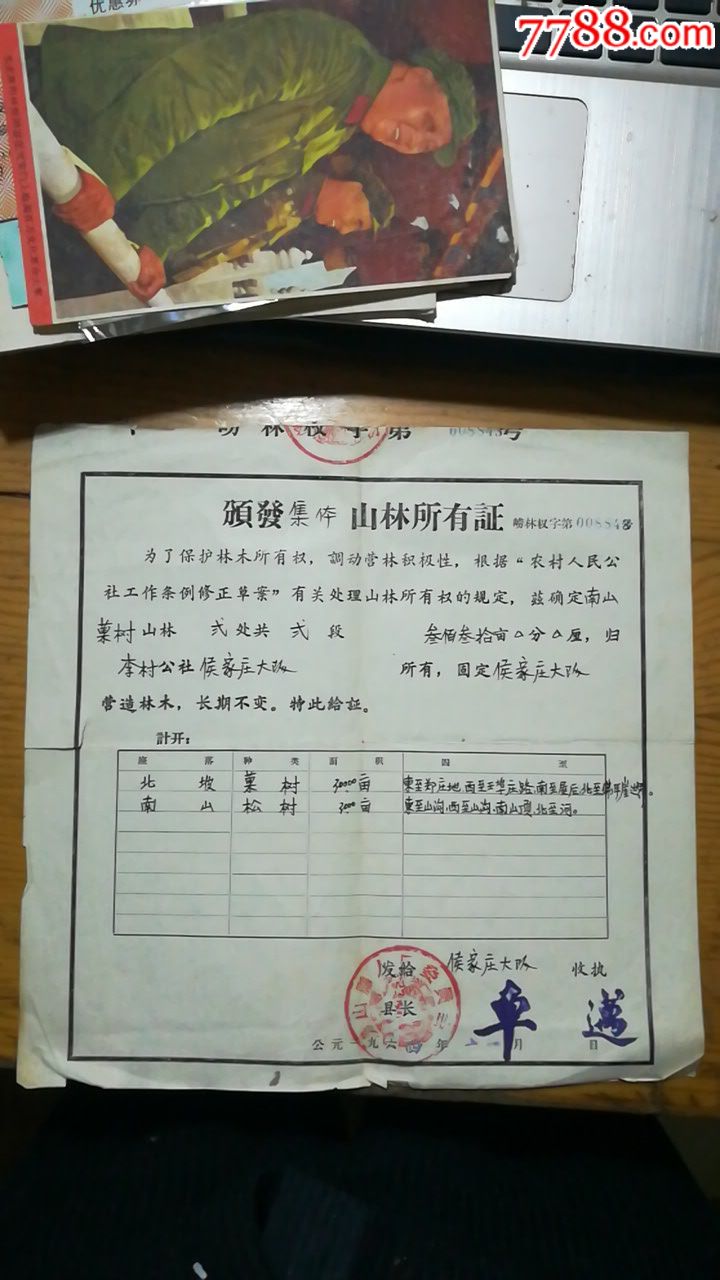 优惠券
7788.com
崂林权字第 008843号
頒發集体山林所有証 崂林权字第008843号
为了保护林木所有权，調动营林积极性，根据“农村人民公
社工作条例修正草案”有关处理山林所有权的规定，茲确定南山
菓树山林 弍处共 弍 段 叁佰叁拾亩△分△厘，归
李村公社侯家庄大队 所有，固定侯家庄大队
营造林木，长期不变。特此給証。
計开：
座落 种类 面积 四至
北坡 菓树 亩 東至郑庄地 西至王埠庄路 南至屋后 北至
南山 松树 亩 東至山沟 西至山沟 南山顶 北至河。
发给 侯家庄大队 收执
县长
公元一九六四年 月 日